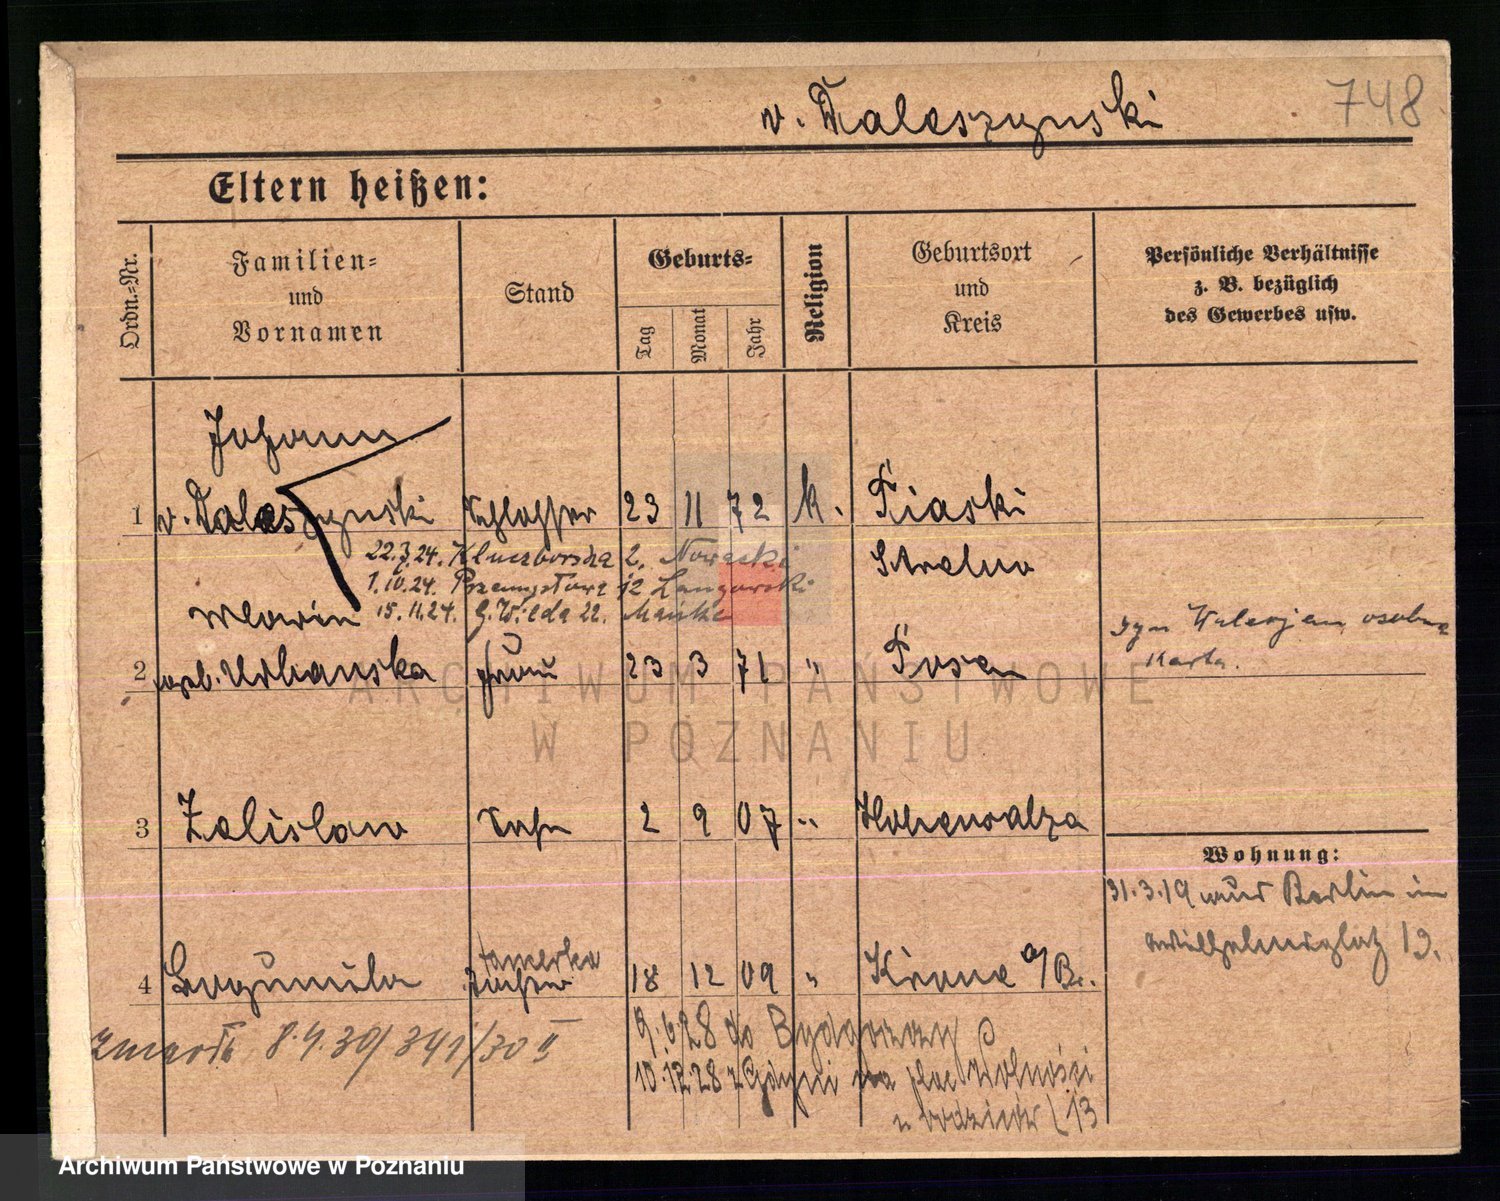 748
v. Daleszynski
Eltern heißen:
Ordn.-Nr.
Familien-
und
Vornamen
Stand
Geburts-
Tag
Monat
Jahr
Religion
Geburtsort
und
Kreis
Persönliche Verhältnisse
z. B. bezüglich
des Gewerbes usw.
Johann
1 v. Daleszynski Schlosser 23 11 72 k. Piaski
Strelno
22.3.24. Kluczborska 2. Nowacki
1.IV.24. Przemysłowa 12 Langowski
15.11.24. G. Wilda 22.
2 geb. Urbanska Frau 23 3 71 " Posen
syn Walerjan osobna
karta.
3 Zelislaw Sohn 2 9 07 " Hohensalza
Wohnung:
31.3.19 aus Berlin in
Wilhelmsplatz 19.
4 Bogumila Tochter 18 12 09 " Krone a/Br.
zmarł 8.4.30/341/30 II
9.6.28 do Bydgoszczy
10.12.28 z Gdyni na plac Wolności
u rodziców 13
ARCHIWUM PAŃSTWOWE
W POZNANIU
Archiwum Państwowe w Poznaniu